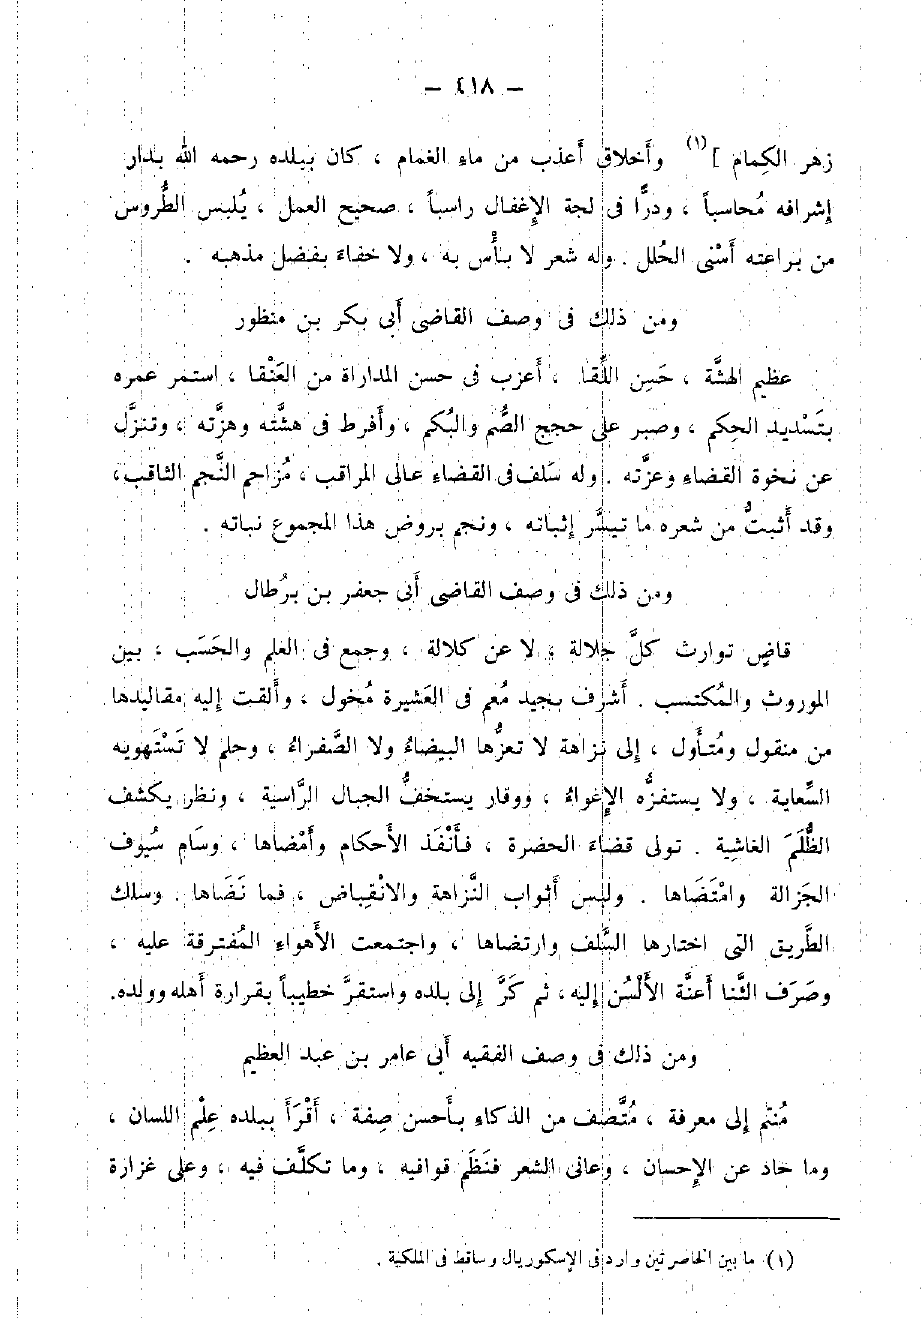 — ٤١٨ —
زهر الكِمام ] (١) وأخلاق أعذب من ماء الغمام ، كان ببلده رحمه الله بدار
إشرافه مُحاسباً ، ودرًّا فى لجة الإغفال راسباً ، صحيح العمل ، يُلبس الطُّروس
من براعته أَسْنى الحُلل . وله شعر لا بأْس به ، ولا خفاءَ بفضل مذهبه .
ومن ذلك فى وصف القاضى أَبى بكر بن منظور
عظيم الهشَّة ، حَسِن اللِّقا ، أَعزب فى حسن المداراة من العَنْقا ، استمر عمره
بتَسْديد الحِكم ، وصبر على حجج الصُّم والبُكم ، وأَفرط فى هشَّته وهزَّته ، وتنزَّل
عن نخوة القضاءِ وعزَّته . وله سَلف فى القضاءِ عالى المراقب ، مُزاحم النَّجم الثاقب،
وقد أَثبتُّ من شعره ما تيسَّر إثباته ، ونجم بروض هذا المجموع نباته .
ومن ذلك فى وصف القاضى أَبى جعفر بن برُطال
قاضٍ توارث كلَّ جلالة ، لا عن كلالة ، وجمع فى العلم والحَسَب ، بين
الموروث والمُكتسب . أَشرف بجيد مُعم فى العَشيرة مُخول ، وأَلقت إليه مقاليدها
من منقول ومُتأَول ، إلى نزاهة لا تعزُّها البيضاءُ ولا الصَّفراءُ ، وحلم لا تَسْتهويه
السِّعاية ، ولا يستفزُّه الإغواءُ ، ووقار يستخفُّ الجبال الرَّاسية ، ونظر يكشف
الظُّلَمَ الغاشية . تولى قضاءَ الحضرة ، فأَنْفَذ الأَحكام وأَمْضاها ، وسَام سُيوف
الجَزالة وامْتَضَاها . ولبس أَثواب النَّزاهة والانْقِباض ، فما نَضَاها . وسلك
الطَّريق التى اختارها السَّلف وارتضاها ، واجتمعت الأَهواء المُفترقة عليه ،
وصَرَف الثَّنا أَعنَّة الأَلْسُن إليه، ثم كَرَّ إلى بلده واستقرَّ خطيباً بقرارة أَهله وولده.
ومن ذلك فى وصف الفقيه أَبى عامر بن عبد العظيم
مُنتم إلى معرفة ، مُتَّصف من الذكاءِ بأَحسن صِفة ، أَقْرَأَ ببلده عِلْم اللسان ،
وما حاد عن الإحسان ، وعانى الشعر فنَظَم قوافيه ، وما تكلَّف فيه ، وعلى غزارة
(١) ما بين الحاصرتين وارد فى الإسكوريال وساقط فى الملكية .